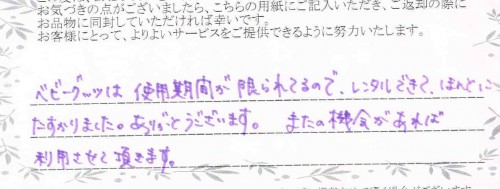 お気づきの点がございましたら、こちらの用紙にご記入いただき、ご返却の際に
お品物に同封していただければ幸いです。
お客様にとって、よりよいサービスをご提供できるように努力いたします。
ベビーグッツは 使用期間が 限られてるので、レンタルできて、ほんとに
たすかりました。ありがとうございます。 またの機会があれば
利用させて頂きます。